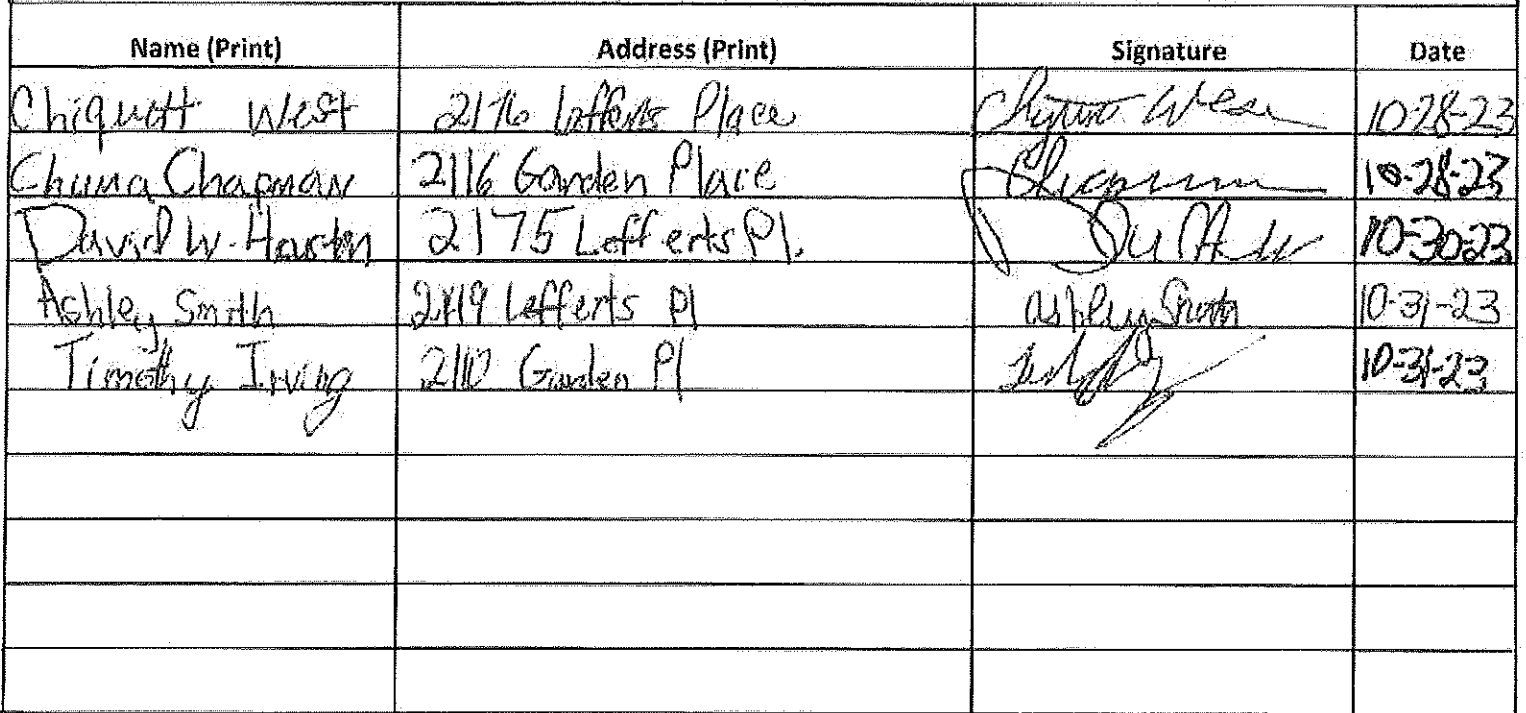 Name (Print) Address (Print) Signature Date
Chiquett West 2176 Lefferts Place West 10-28-23
Chuma Chapman 2116 Garden Place 10-28-23
David W. Houston 2175 Lefferts Pl. 10-30-23
Ashley Smith Lefferts Pl Ashley Smith 10-31-23
Timothy Irving Garden Pl 10-31-23